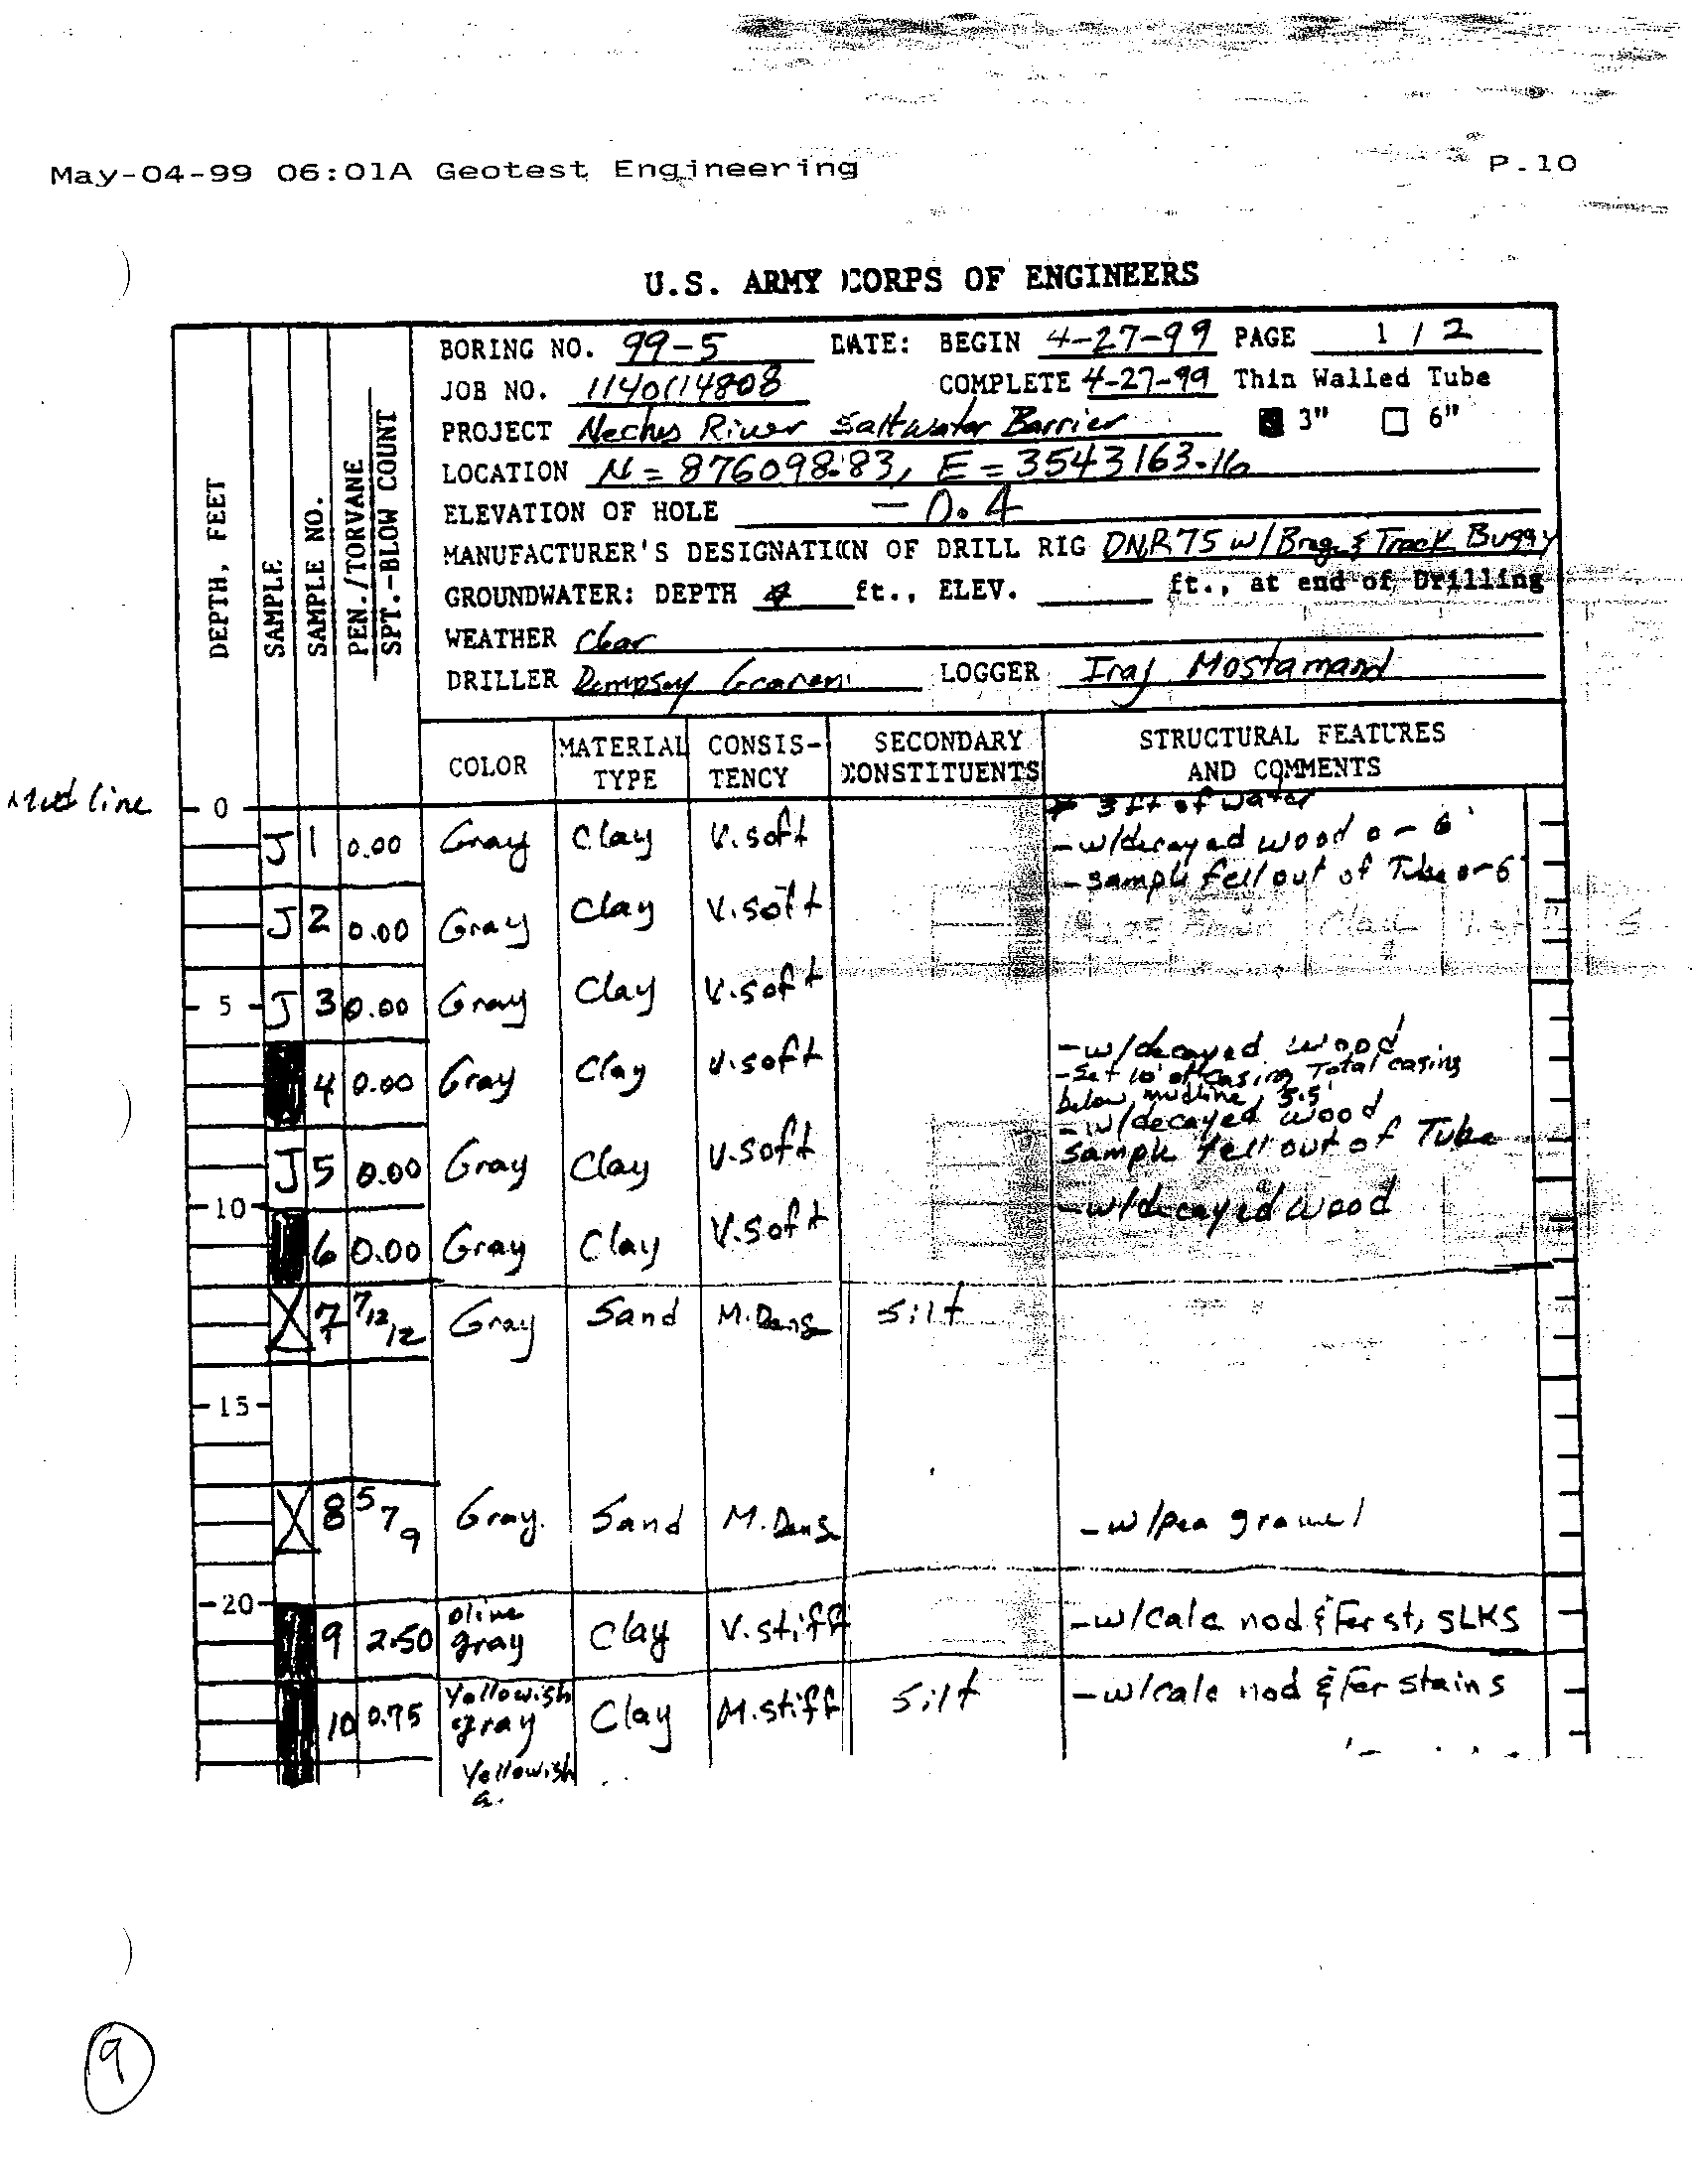 May-04-99 06:01A Geotest Engineering P.10
U.S. ARMY CORPS OF ENGINEERS
BORING NO. 99-5 DATE: BEGIN 4-27-99 PAGE 1 / 2
JOB NO. 1140114808 COMPLETE 4-27-99 Thin Walled Tube
PROJECT Neches River Saltwater Barrier 3" 6"
LOCATION N = 876098.83, E = 3543163.16
ELEVATION OF HOLE -0.4
MANUFACTURER'S DESIGNATION OF DRILL RIG DNR 75 w/ & Track Buggy
GROUNDWATER: DEPTH ft., ELEV. ft., at end of Drilling
WEATHER Clear
DRILLER Dempsey LOGGER Iraj Mostamand
DEPTH, FEET
SAMPLE
SAMPLE NO.
PEN./TORVANE
SPT.-BLOW COUNT
COLOR MATERIAL TYPE CONSISTENCY SECONDARY CONSTITUENTS STRUCTURAL FEATURES AND COMMENTS
Mud line 0 3 ft of water
J 1 0.00 Gray Clay V. soft - w/decayed wood 0 - 6'
- sample fell out of Tube 0-6'
J 2 0.00 Gray Clay V. soft
5 J 3 0.00 Gray Clay V. soft
4 0.00 Gray Clay V. soft - w/decayed wood
- Set 10' of casing Total casing
below mudline, 5.5'
J 5 0.00 Gray Clay V. soft - w/decayed wood
sample fell out of Tube
10
6 0.00 Gray Clay V. soft - w/decayed wood
7 7/12/12 Gray Sand M. Dense Silt
15
8 5 7 9 Gray Sand M. Dense - w/pea gravel
20
9 2.50 Olive gray Clay V. stiff - w/calc nod & fer st, SLKS
10 0.75 Yellowish gray Clay M. stiff Silt - w/calc nod & fer stains
Yellowish
9